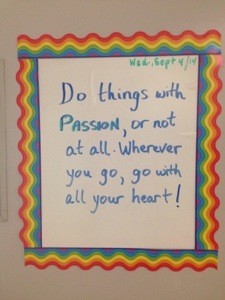 Wed, Sept 4/14
Do things with
PASSION, or not
at all. Wherever
you go, go with
all your heart!